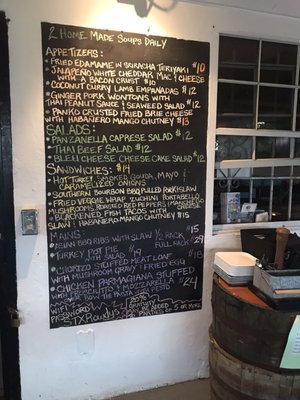 2 Home Made Soups Daily
Appetizers:
• Fried Edamame in Sriracha Teriyaki $10
• Jalapeño White Cheddar Mac & Cheese
with a Bacon Crust $10
• Coconut Curry Lamb Empanadas $12
• Ginger Pork Wontons with
Thai Peanut Sauce & Seaweed Salad $12
• Panko Crusted Fried Brie Cheese
with Habanero Mango Chutney $13
Salads:
• Panzanella Caprese Salad $12
• Thai Beef Salad $12
• Bleu Cheese Cheese Cake Salad $12
Sandwiches: $14
• Hot Turkey, Smoked Gouda, Mayo &
Caramelized Onions
• Southern Bourbon BBQ Pulled Pork & Slaw
• Fried Veggie Wrap Zucchini, Portabello
Mushrooms, Roasted Red Peppers,
• Blackened Fish Tacos with
Slaw & Habanero Mango Chutney $15
Mains
• Asian BBQ Ribs with Slaw 1/2 Rack $15
Full Rack $29
• Turkey Pot Pie
with Salad $19
• Chorizo Stuffed Meat Loaf $18
with Mushroom Gravy & Fried Egg
• Chicken Parmagiana Stuffed
Mozzarella $24
with Pasta with Pesto
20%
Gratuity
Added
5 or More